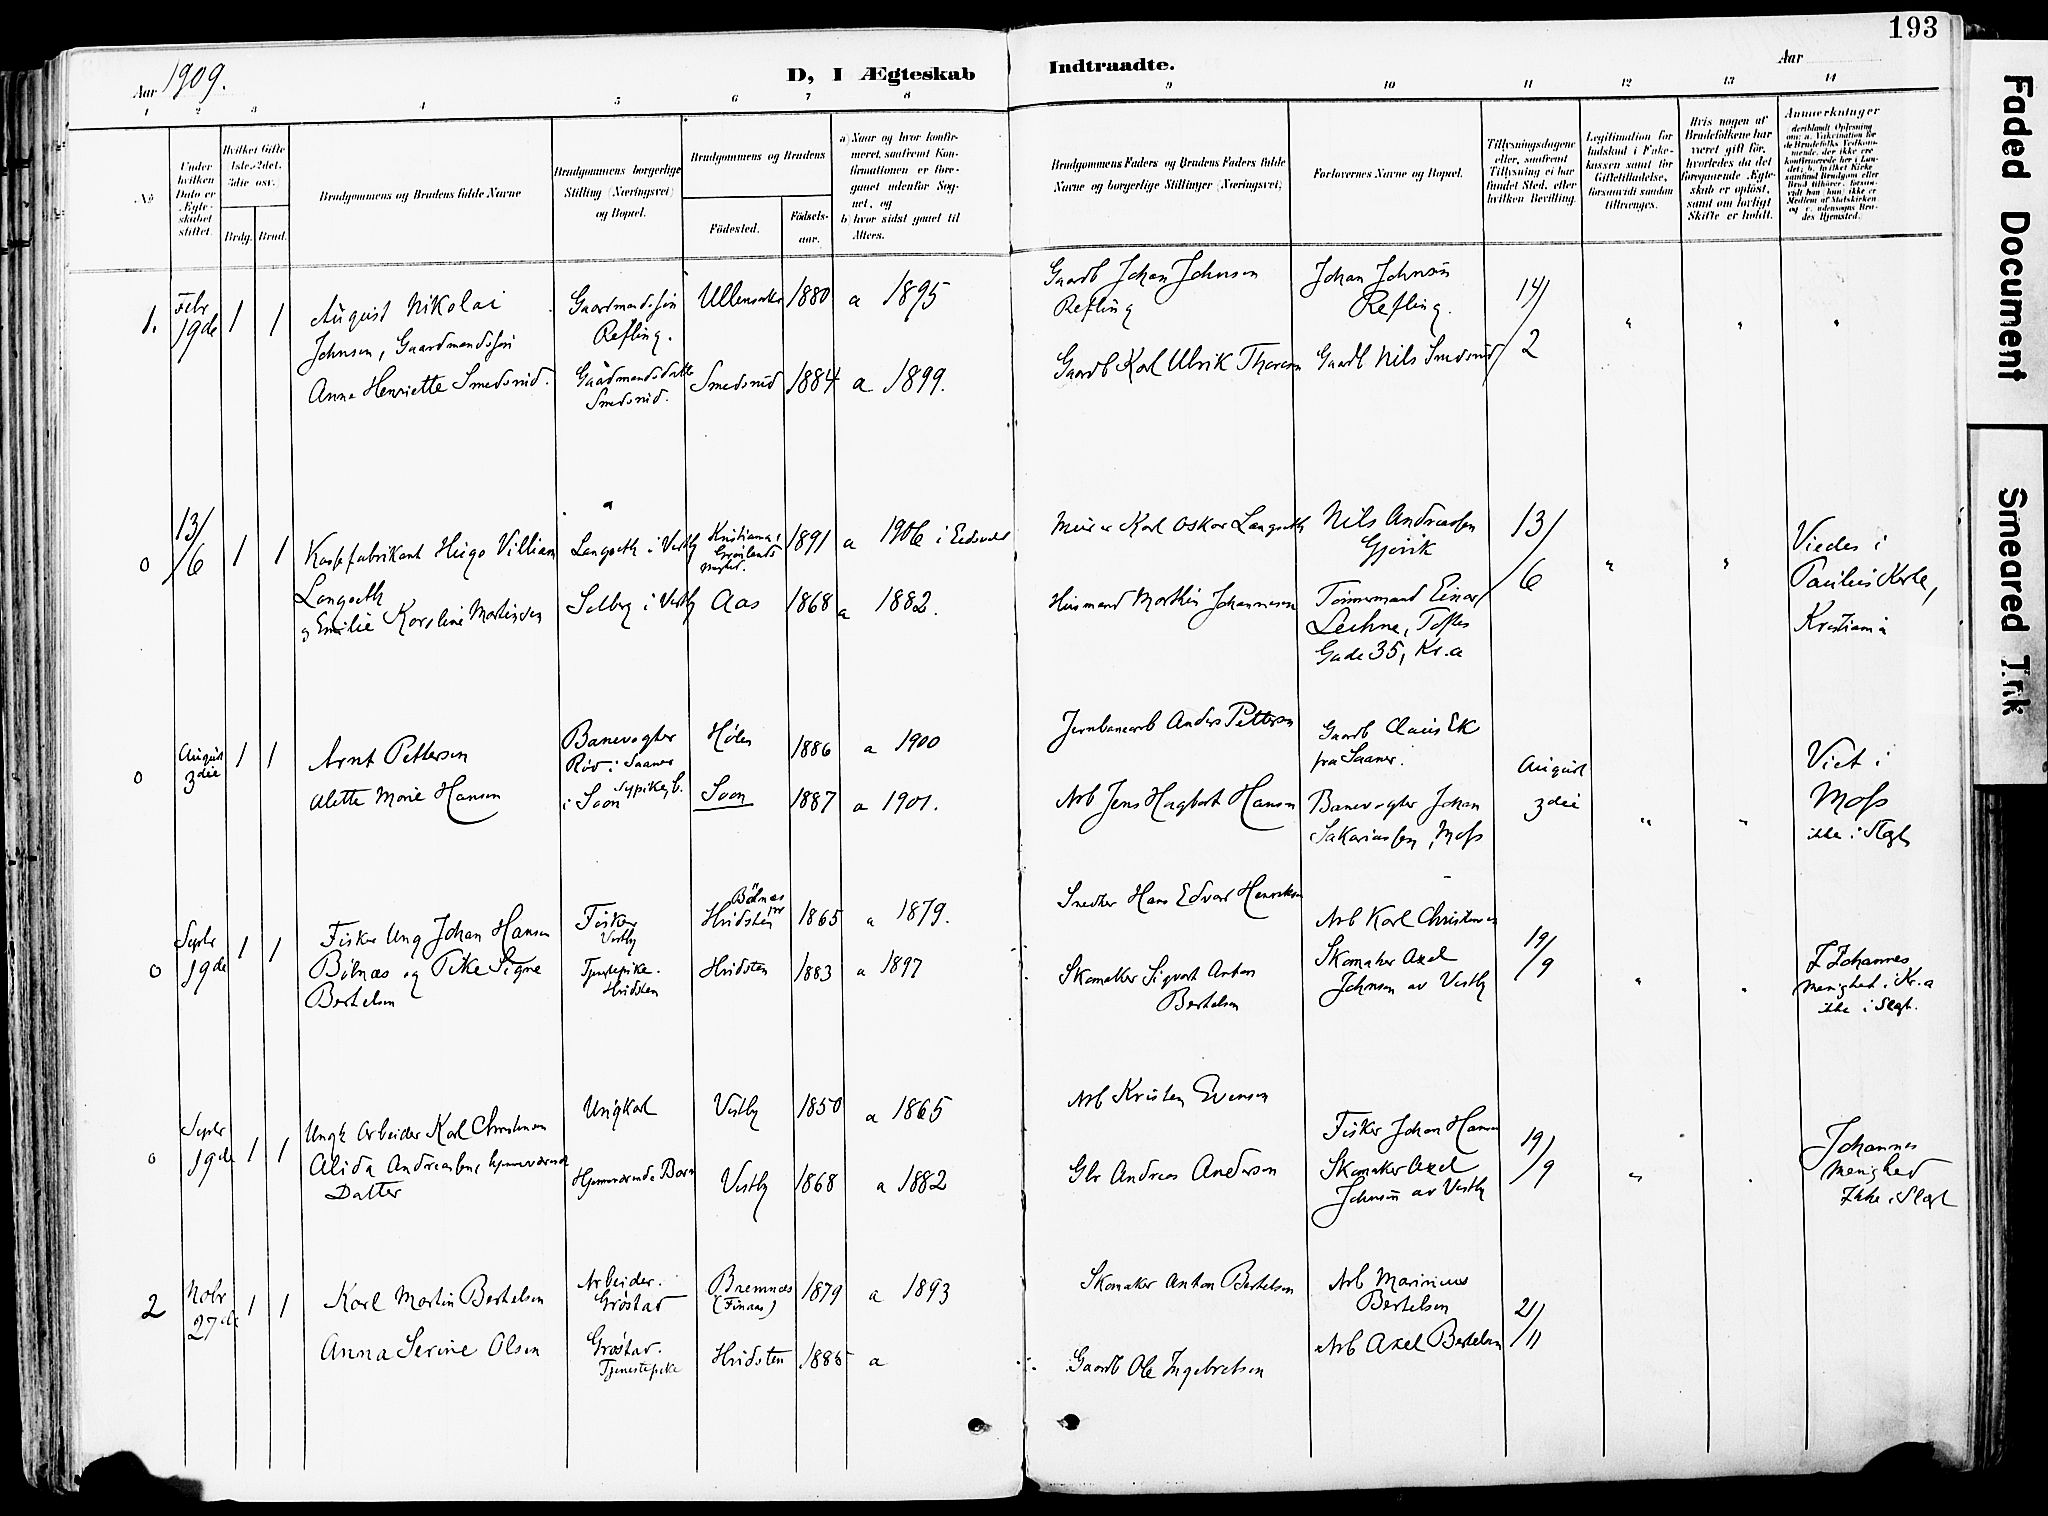 193
Aar 1909.
D, I Ægteskab
Indtraadte.
Aar
1 2 3 4 5 6 7 8 9 10 11 12 13 14
No
Under hvilken Dato er Ægteskabet stiftet.
Hvilket Gifte 1ste, 2det, 3die osv.
Brdg. Brud.
Brudgommens og Brudens fulde Navne
Brudgommens borgerlige Stilling (Næringsvei) og Bopæl.
Brudgommens og Brudens
Fødested.
Fødselsaar.
a) Naar og hvor konfirmeret, saafremt Konfirmationen er foregaaet udenfor Sognet, og
b) hvor sidst gaaet til Alters.
Brudgommens Faders og Brudens Faders fulde Navne og borgerlige Stillinger (Næringsvei)
Forlovernes Navne og Bopæl.
Tillysningsdagene eller, saafremt Tillysning ei har fundet Sted, efter hvilken Bevilling.
Legitimation for Indskud i Enkekassen samt for Giftetilladelse, forsaavidt saadan tiltrænges.
Hvis nogen af Brudefolkene har været gift før, hvorledes da det foregaaende Ægteskab er opløst, samt om lovligt Skifte er holdt.
Anmærkninger
1. Febr 19de 1 1
August Nikolai
Johnsen, Gaardmandssøn
Gaardmandssøn
Refling.
Ullensaker 1880 a 1895
Gaardb Johan Johnsen
Refling
Johan Johnsen
Refling.
14/2
Anne Henriette Smedsrud.
Gaardmandsdatter
Smedsrud.
Smedsrud 1884 a 1899.
Gaardb Karl Ulrik Thoresen
Gaardb Nils Smedsrud
0 13/6 1 1
Kassefabrikant Hugo Villiam
Langseth
Langseth i Vestby
Kristiania, Grønlands
1891 a 1906 i Eidsvold
Karl Oskar Langseth
Nils Andreassen
Gjøvik
13/6
Viedes i
Paulus Kirke,
Kristiania
og Emilie Karoline Martinsen
Solberg i Vestby Aas 1868 a 1882.
Husmand Morthin Johannesen
Tømmermand Einar
Lechne, Toftes
Gade 35, Kr.a
0 August 3die 1 1
Arnt Pettersen
Banevogter
Røv i Saaner
Hølen 1886 a 1900
Jernbanearb Anders Pettersen
Gaardb Claus Ek
fra Saaner.
August
3die
Viet i
Moss
ikke i Slegt
Alette Marie Hansen
Sypike
i Soon
Soon 1887 a 1901.
Arb Jens Hagbart Hansen
Banevogter Johan
Sakariassen, Moss
0 Septbr 19de 1 1
Fisker Ung Johan Hansen
Bølnæs og Pike Signe
Bertelsen
Fisker
Vestby
Bølnæs
Hvidsten 1865 a 1879.
Snedker Hans Edvard Henriksen
Arb Karl Christensen
19/9
Tjenestepike.
Hvidsten
Hvidsten 1883 a 1897
Skomaker Sigvart Anton
Bertelsen
Skomaker Axel
Johnsen av Vestby
Johannes
Menighet i Kr.a
ikke i Slegt.
0 Septbr 19de 1 1
Ungk Arbeider Karl Christensen
Alida Andreassen, hjemmeværende
Datter
Ungkarl
Vestby 1850 a 1865
Arb Kristen Evensen
Fisker Johan Hansen
19/9
Hjemmeværende Barn
Vestby 1868 a 1882
Andreas Andersen
Skomaker Axel
Johnsen av Vestby
Johannes
Menighed
Ikke i Slegt
2 Nobr 27de 1 1
Karl Martin Bertelsen
Arbeider.
Grøstad
Bremnæs
1879 a 1893
Skomaker Anton Bertelsen
Arb Marinius
Bertelsen
21/11
Anna Serine Olsen
Grøstad.
Tjenestepike
Hvidsten 1885 a
Gaardb Ole Ingebretsen
Arb Axel Bertelsen
Faded Document
Smeared Ink